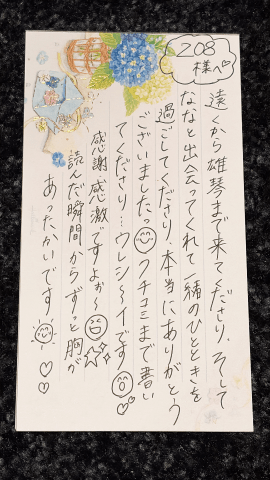 208
様へ♡
遠くから雄琴まで来てくださり、そして
ななと出会ってくれて一緒のひとときを
過ごしてくださり、本当にありがとう
ございましたっ クチコミまで書い
てくださり…ウレシ〜イです
感謝感激ですよぉ〜
読んだ瞬間からずっと胸が
あったかいです